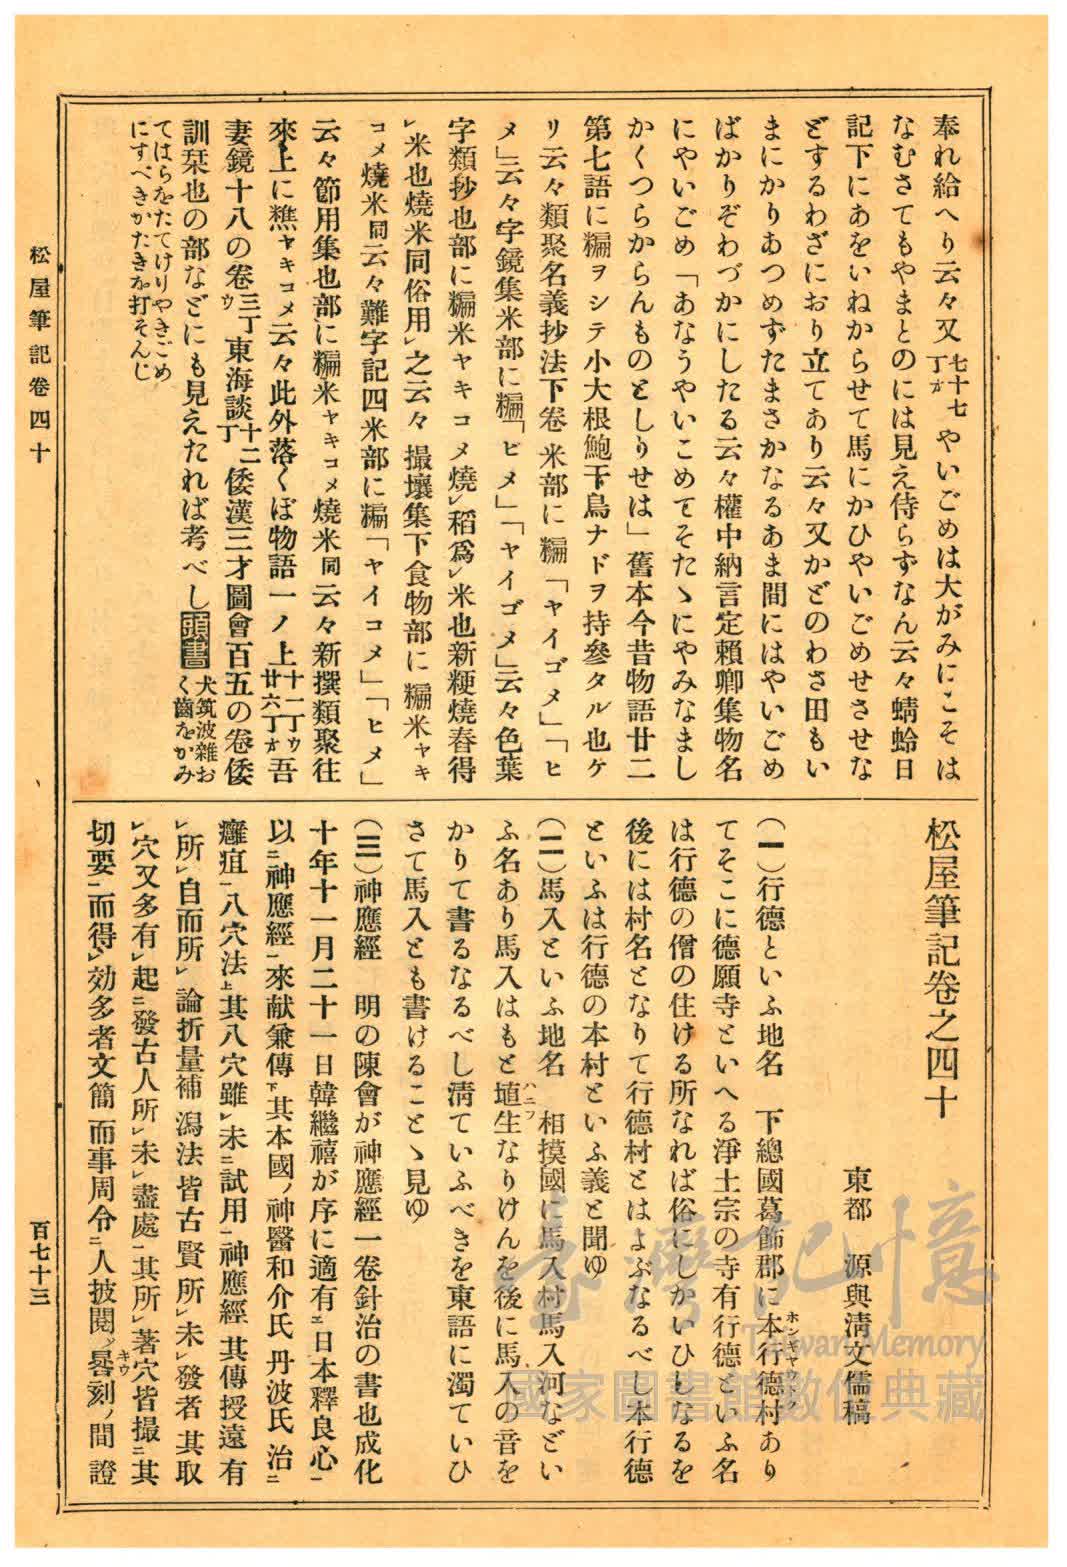 奉れ給へり云々又七十七丁オやいごめは大がみにこそは
なむさてもやまとのにには見え侍らずなん云々蜻蛉日
記下にあをいねからせて馬にかひやいごめせさせな
どするわざにおり立てあり云々又かどのわさ田もい
まにかりあつめずたまさかなるあま間にはやいごめ
ばかりぞわづかにしたる云々權中納言定賴卿集物名
にやいごめ「あなうやいこめてそだゝにやみなまし
かくつらからんものとしりせは」舊本今昔物語廿二
第七語に糄ヲシテ小大根鮑干鳥ナドヲ持參タル也ケ
リ云々類聚名義抄法下卷米部に糄「ヤイゴメ」「ヒ
メ」云々字鏡集米部に糄「ビメ」「ヤイゴメ」云々色葉
字類抄也部に糄米ヤキコメ燒レ稻爲レ米也新粳燒舂得
レ米也燒米同俗用レ之云々 撮壤集下食物部に糄米ヤキ
コメ燒米同云々難字記四米部に糄「ヤイコメ」「ヒメ」
云々節用集也部に糄米ヤキコメ燒米同云々新撰類聚往
來上に糕ヤキコメ云々此外落くぼ物語一ノ上十一丁ウ廿六丁オ吾
妻鏡十八の卷三丁ウ東海談十二丁倭漢三才圖會百五の卷倭
訓栞也の部などにも見えたれば考べし頭書犬筑波雜おく齒をかみ
てはらをたてけりやきごめ
にすべきかたきを打そんじ
松屋筆記卷四十
松屋筆記卷之四十
東都 源與淸文儒稿
(一)行德といふ地名 下總國葛飾郡に本行德村ホンギヤウトクあり
てそこに德願寺といへる淨土宗の寺有行德といふ名
は行德の僧の住ける所なれば俗にしかいひしなるを
後には村名となりて行德村とはよぶなるべし本行德
といふは行德の本村といふ義と聞ゆ
(二)馬入といふ地名 相摸國に馬入村馬入河などい
ふ名あり馬入はもと埴生ハニフなりけんを後に馬入の音を
かりて書るなるべし淸ていふべきを東語に濁ていひ
さて馬入とも書けることゝ見ゆ
(三)神應經 明の陳會が神應經一卷針治の書也成化
十年十一月二十一日韓繼禧が序に適有ニ日本釋良心一
以ニ神應經一來献兼傳下其本國ノ神醫和介氏丹波氏治ニ
癰疽一八穴法上其八穴雖レ未ニ試用一神應經其傳授遠有
レ所レ自而所レ論折量補瀉法皆古賢所レ未レ發者其取
レ穴又多有レ起ニ發古人所レ未レ盡處一其所レ著穴皆撮ニ其
切要一而得レ効多者文簡而事周令ニ人披閱ノ晷刻キウノ間證
百七十三
臺灣記憶
Taiwan Memory
國家圖書館數位典藏